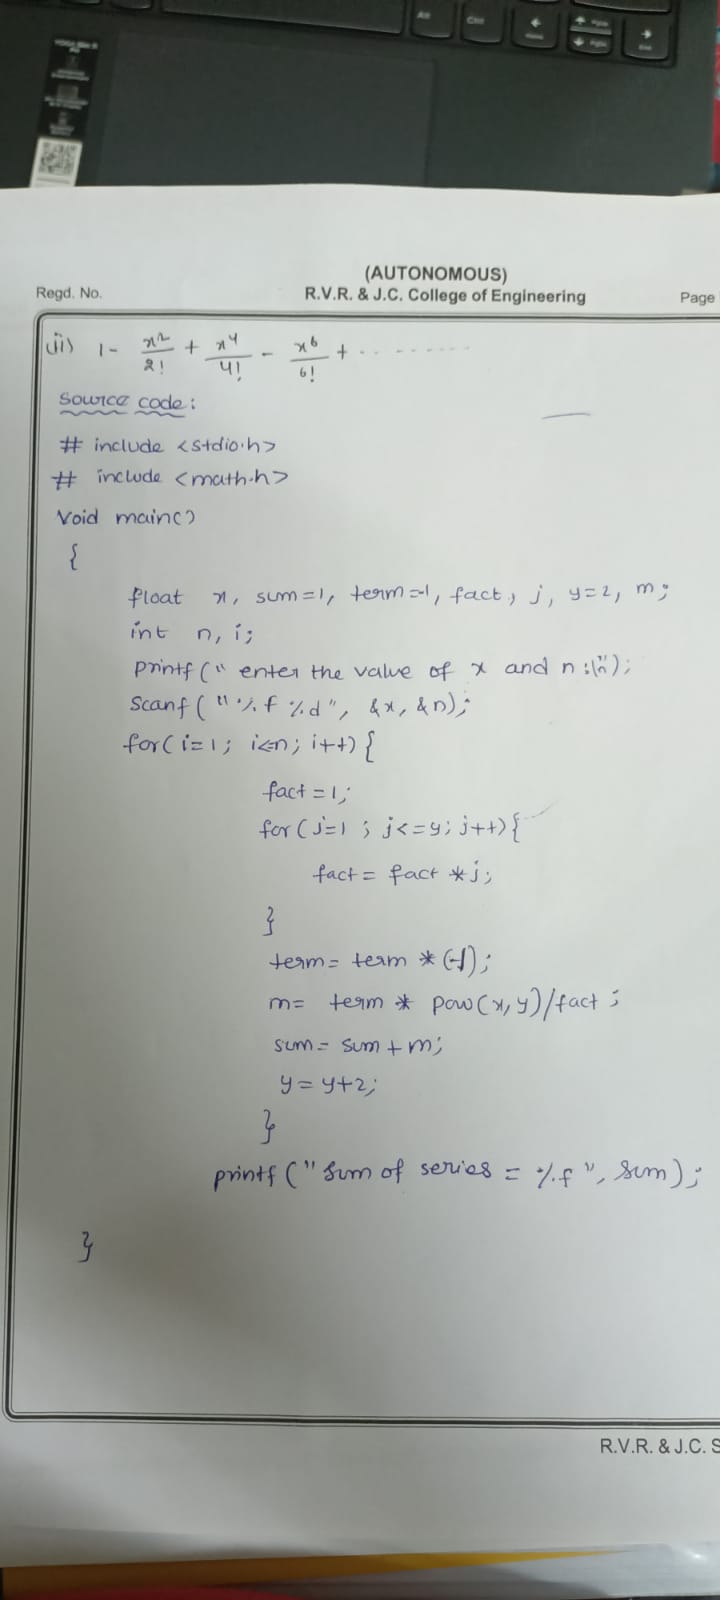 Alt Ctrl
(AUTONOMOUS)
Regd. No. R.V.R. & J.C. College of Engineering Page
ii) 1- x2/2! + x4/4! - x6/6! + ..........
Source code:
# include <stdio.h>
# include <math.h>
Void main()
{
float x, sum=1, term=1, fact, j, y=2, m;
int n, i;
printf(" enter the value of x and n :\n");
Scanf("%f %d", &x, &n);
for(i=1; i<=n; i++){
fact=1;
for(j=1 ; j<=y; j++){
fact= fact *j;
}
term= term * (-1);
m= term * pow(x,y)/fact ;
sum= sum+m;
y=y+2;
}
printf("Sum of series = %f", Sum);
}
R.V.R. & J.C. S